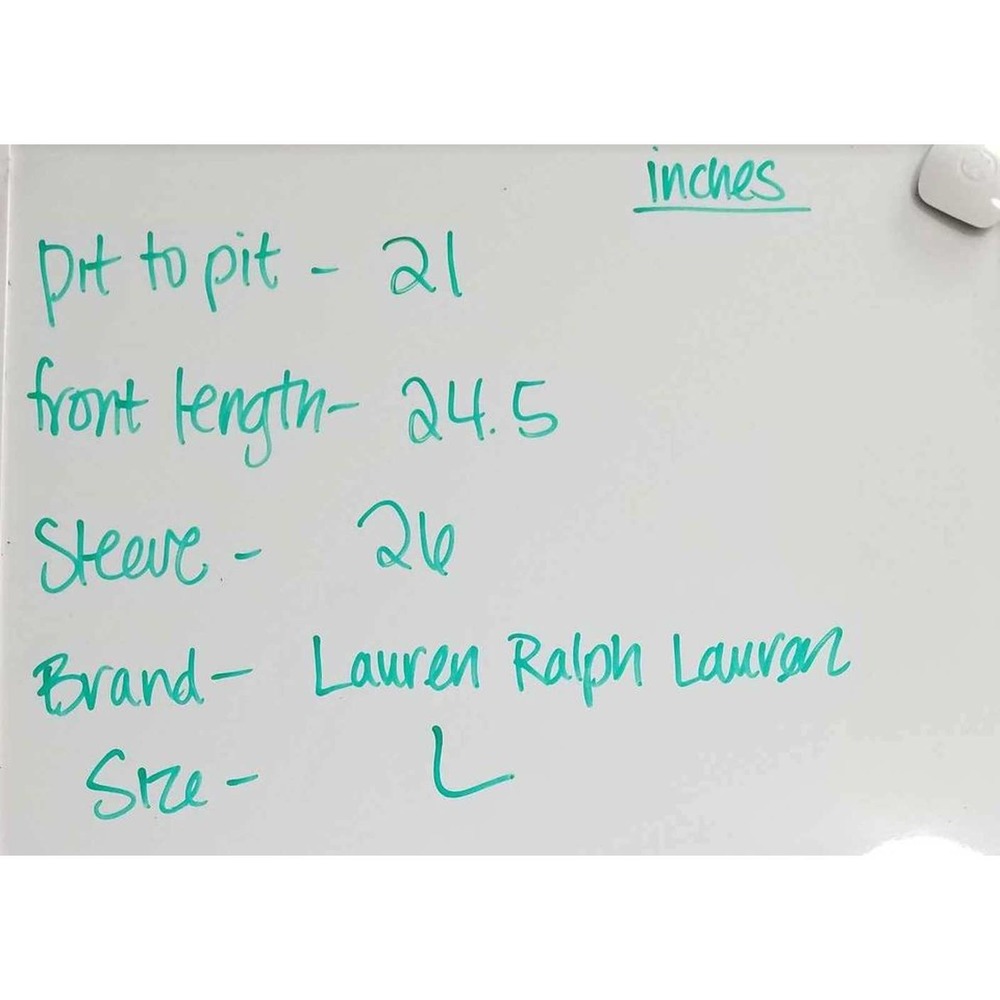 inches
pit to pit - 21
front length - 24.5
Sleeve - 26
Brand - Lauren Ralph Lauren
Size - L